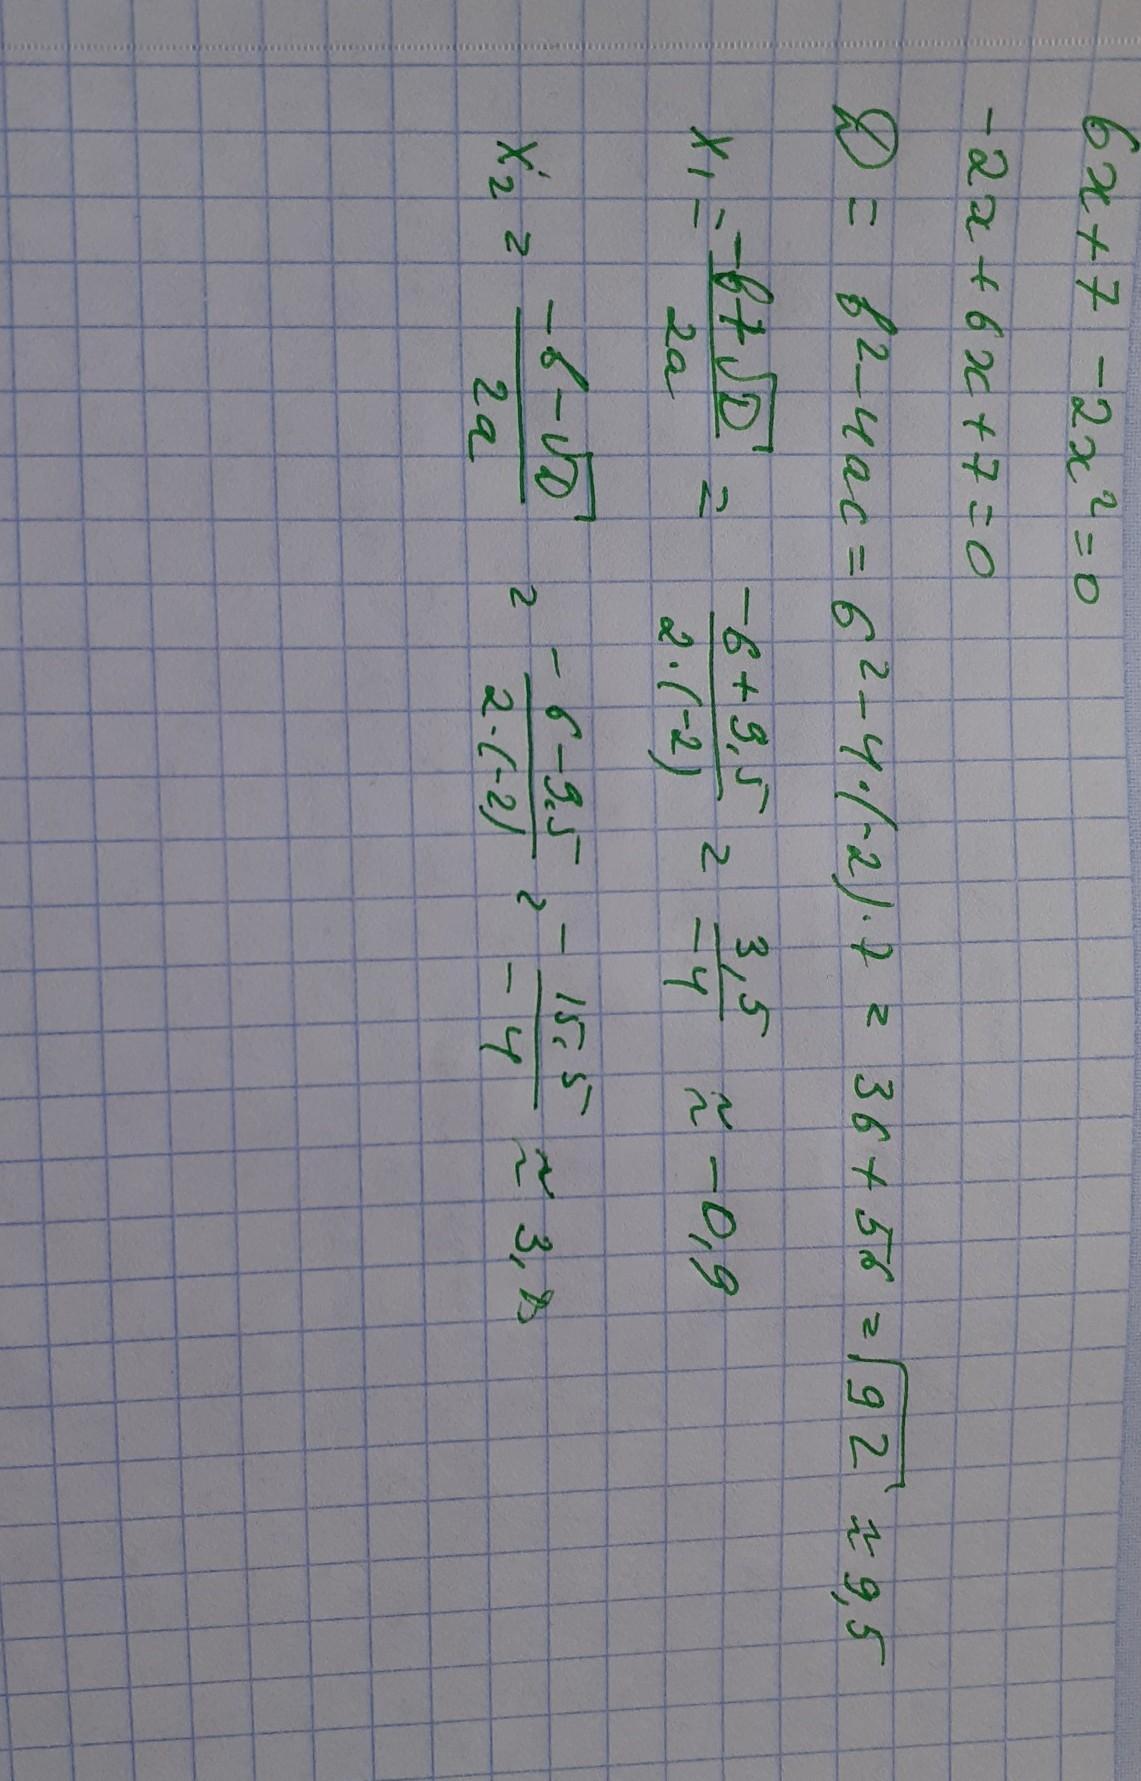 6x + 7 - 2x² = 0
-2x + 6x + 7 = 0
D = b² - 4ac = 6² - 4·(-2)·7 = 36 + 56 = √92 ≈ 9,5
x₁ = (-b + √D)/(2a) = (-6 + 9,5)/(2·(-2)) = 3,5/(-4) ≈ -0,9
x₂ = (-b - √D)/(2a) = (-6 - 9,5)/(2·(-2)) = (-15,5)/(-4) ≈ 3,8